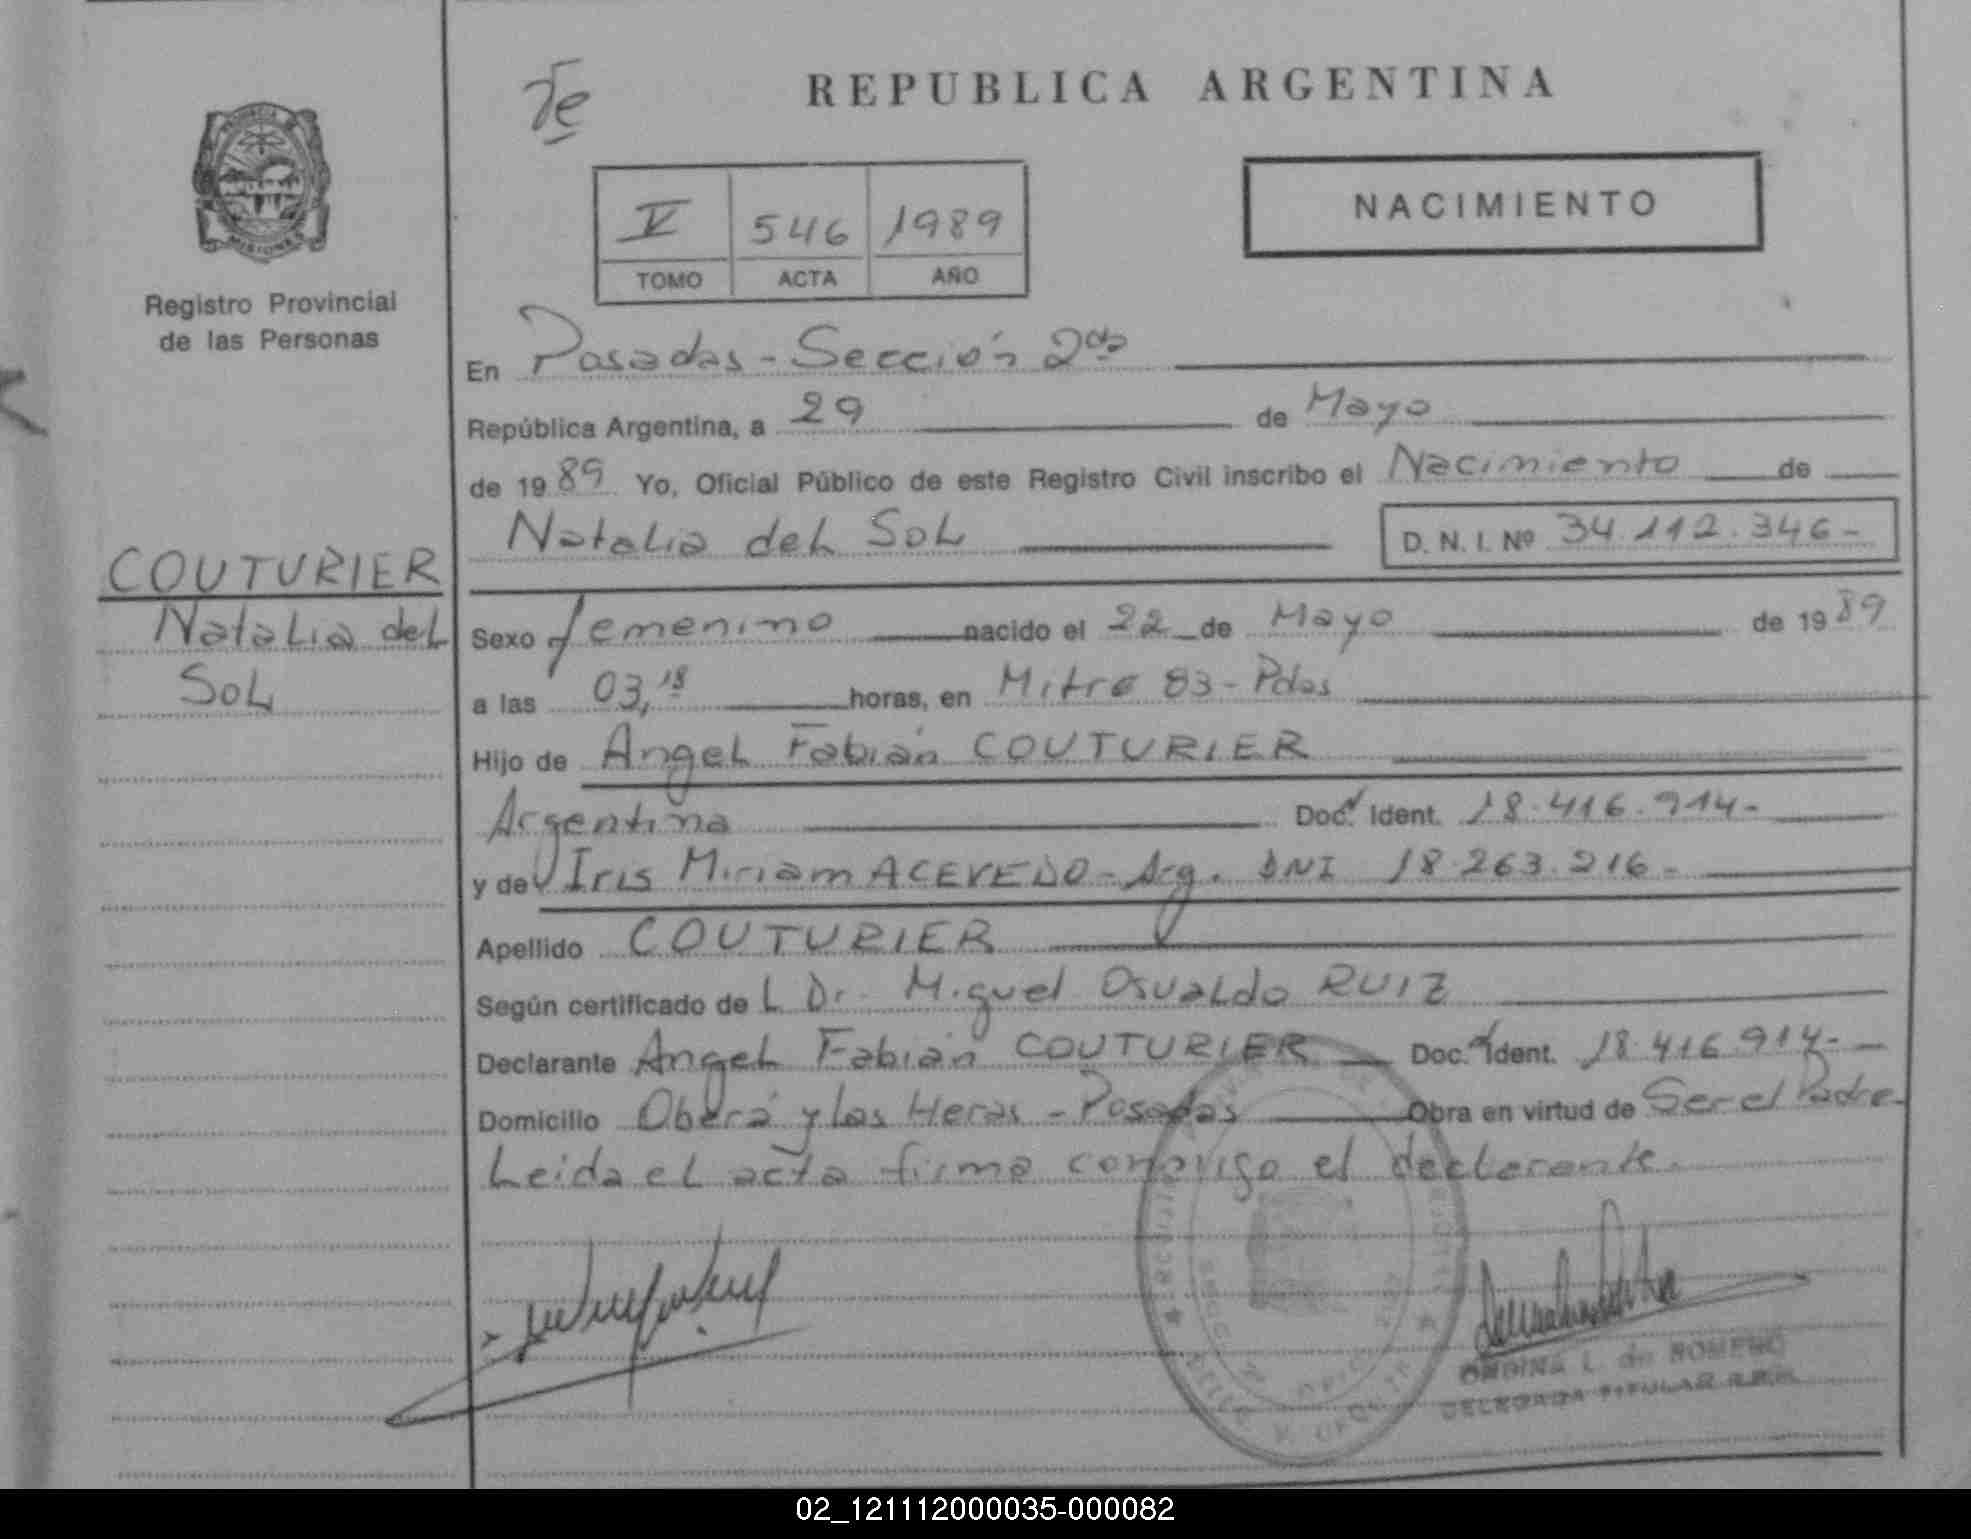 REPUBLICA ARGENTINA
PROVINCIA DE
MISIONES
Registro Provincial
de las Personas
V 546 1989
TOMO ACTA AÑO
NACIMIENTO
En Posadas - Sección 2da
República Argentina, a 29 de Mayo
de 1989 Yo, Oficial Público de este Registro Civil inscribo el Nacimiento de
Natalia del Sol D. N. I. Nº 34.112.346-
COUTURIER
Natalia del
Sol
Sexo femenino nacido el 22 de Mayo de 1989
a las 03,18 horas, en Mitre 83 - Pdas
Hijo de Angel Fabián COUTURIER
Argentina Doc. Ident. 18.416.914-
y de Iris Miriam ACEVEDO - Arg. DNI 18.263.216-
Apellido COUTURIER
Según certificado del Dr. Miguel Osvaldo RUIZ
Declarante Angel Fabián COUTURIER Doc. Ident. 18.416.914-
Domicilio Oberá y las Heras - Posadas Obra en virtud de Ser el Padre-
Leida el acta firma conmigo el declarante.
ONDINA L. de ROMERO
DELEGADA TITULAR R.P.P.
02_121112000035-000082